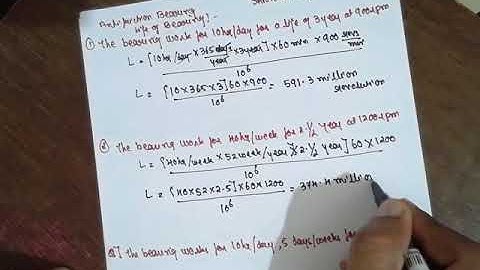 Antifriction Bearing
Life of Bearing:-
① The bearing work for 10hr/day for a life of 3 year at 900rpm
L = [10hr/day × 365 days/year × 3 year] × 60 min × 900 rev/min
10⁶
L = [10×365×3] 60×900 = 591.3 million revolution
10⁶
② The bearing work for 40hr/week for 2·½ year at 1200rpm
L = [40hr/week × 52 week/year × 2·½ year] 60 × 1200
10⁶
L = [40×52×2.5]×60×1200 = 374.4 million
10⁶
③] The bearing works for 10hr/day, 5 days/weeks for